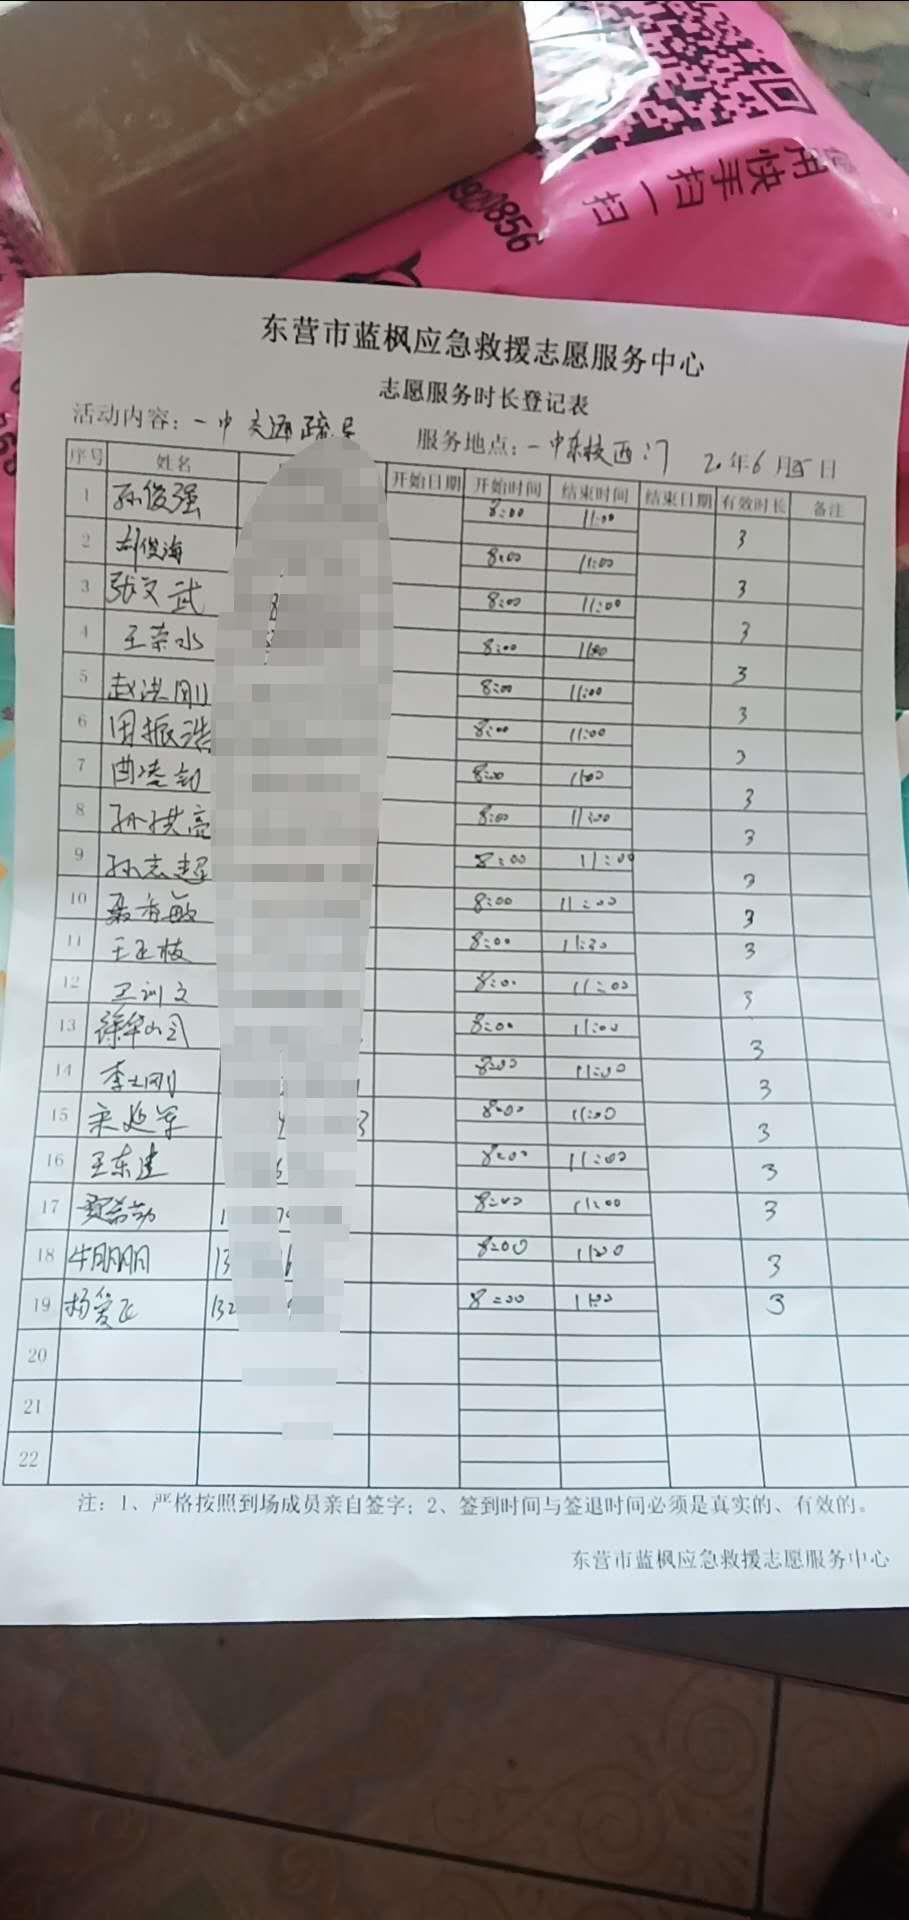 用快手扫一扫
920856
东营市蓝枫应急救援志愿服务中心
志愿服务时长登记表
活动内容：一中交通疏导 服务地点：一中东校西门 2. 年 6 月 日
序号 姓名 开始日期 开始时间 结束时间 结束日期 有效时长 备注
1 孙俊强 8:00 11:00 3
2 刘俊海 8:00 11:00 3
3 张文武 8:00 11:00 3
4 王荣水 8:00 11:00 3
5 赵洪刚 8:00 11:00 3
6 周振浩 8:00 11:00 3
7 曲凌 8:00 11:00 3
8 孙洪亮 8:00 11:00 3
9 孙志超 8:00 11:00 3
10 聂秀敏 8:00 11:00 3
11 王玉枝 8:00 11:30 3
12 卫训文 8:00 11:00 3
13 徐华 8:00 11:00 3
14 李士刚 8:00 11:00 3
15 宋延军 3 8:00 11:00 3
16 王东建 8:00 11:00 3
17 8:00 11:00 3
18 牛朋朋 13 8:00 11:00 3
19 杨爱飞 132 8:00 11:00 3
20
21
22
注：1、严格按照到场成员亲自签字；2、签到时间与签退时间必须是真实的、有效的。
东营市蓝枫应急救援志愿服务中心